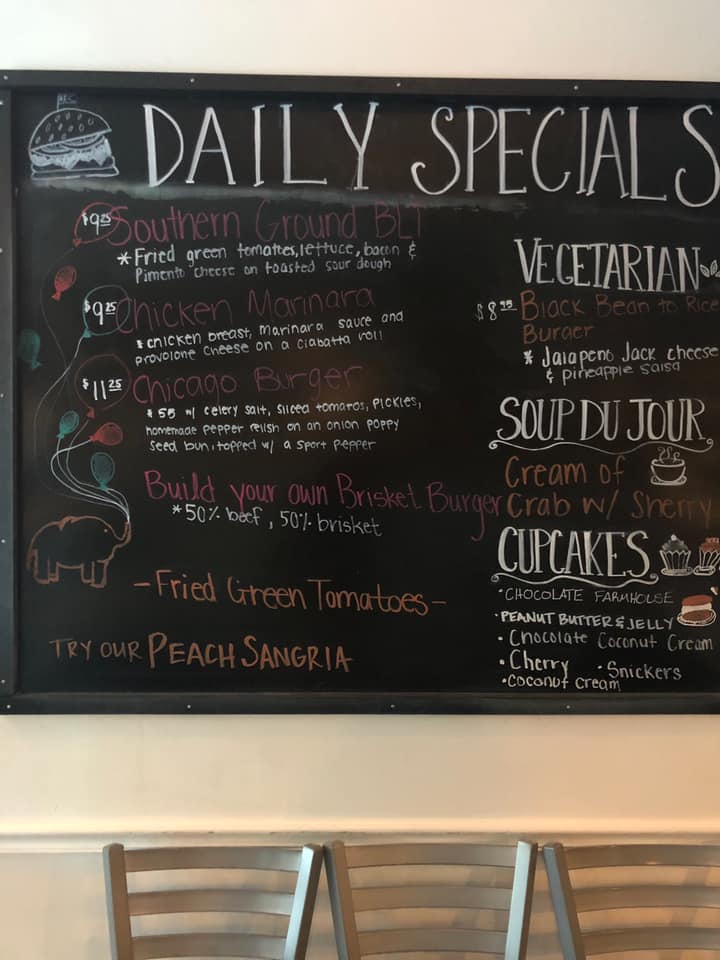 DAILY SPECIALS
$9.25 Southern Ground BLT
* Fried green tomattes, lettuce, bacon &
Pimento cheese on toasted sour dough
$9.25 Chicken Marinara
* chicken breast, marinara sauce and
provolone cheese on a ciabatta roll
$11.25 Chicago Burger
* 55 w/ celery salt, sliced tomatos, pickles,
homemade pepper relish on an onion poppy
seed bun, topped w/ a sport pepper
Build your own Brisket Burger
* 50% beef, 50% brisket
- Fried Green Tomatoes -
TRY OUR PEACH SANGRIA
VEGETARIAN
$8.95 Black Bean to Rice
Burger
* Jalapeno Jack cheese
& pineapple salsa
SOUP DU JOUR
Cream of
Crab w/ Sherry
CUPCAKES
• CHOCOLATE FARMHOUSE
• PEANUT BUTTER & JELLY
• Chocolate Coconut Cream
• Cherry • Snickers
• coconut cream